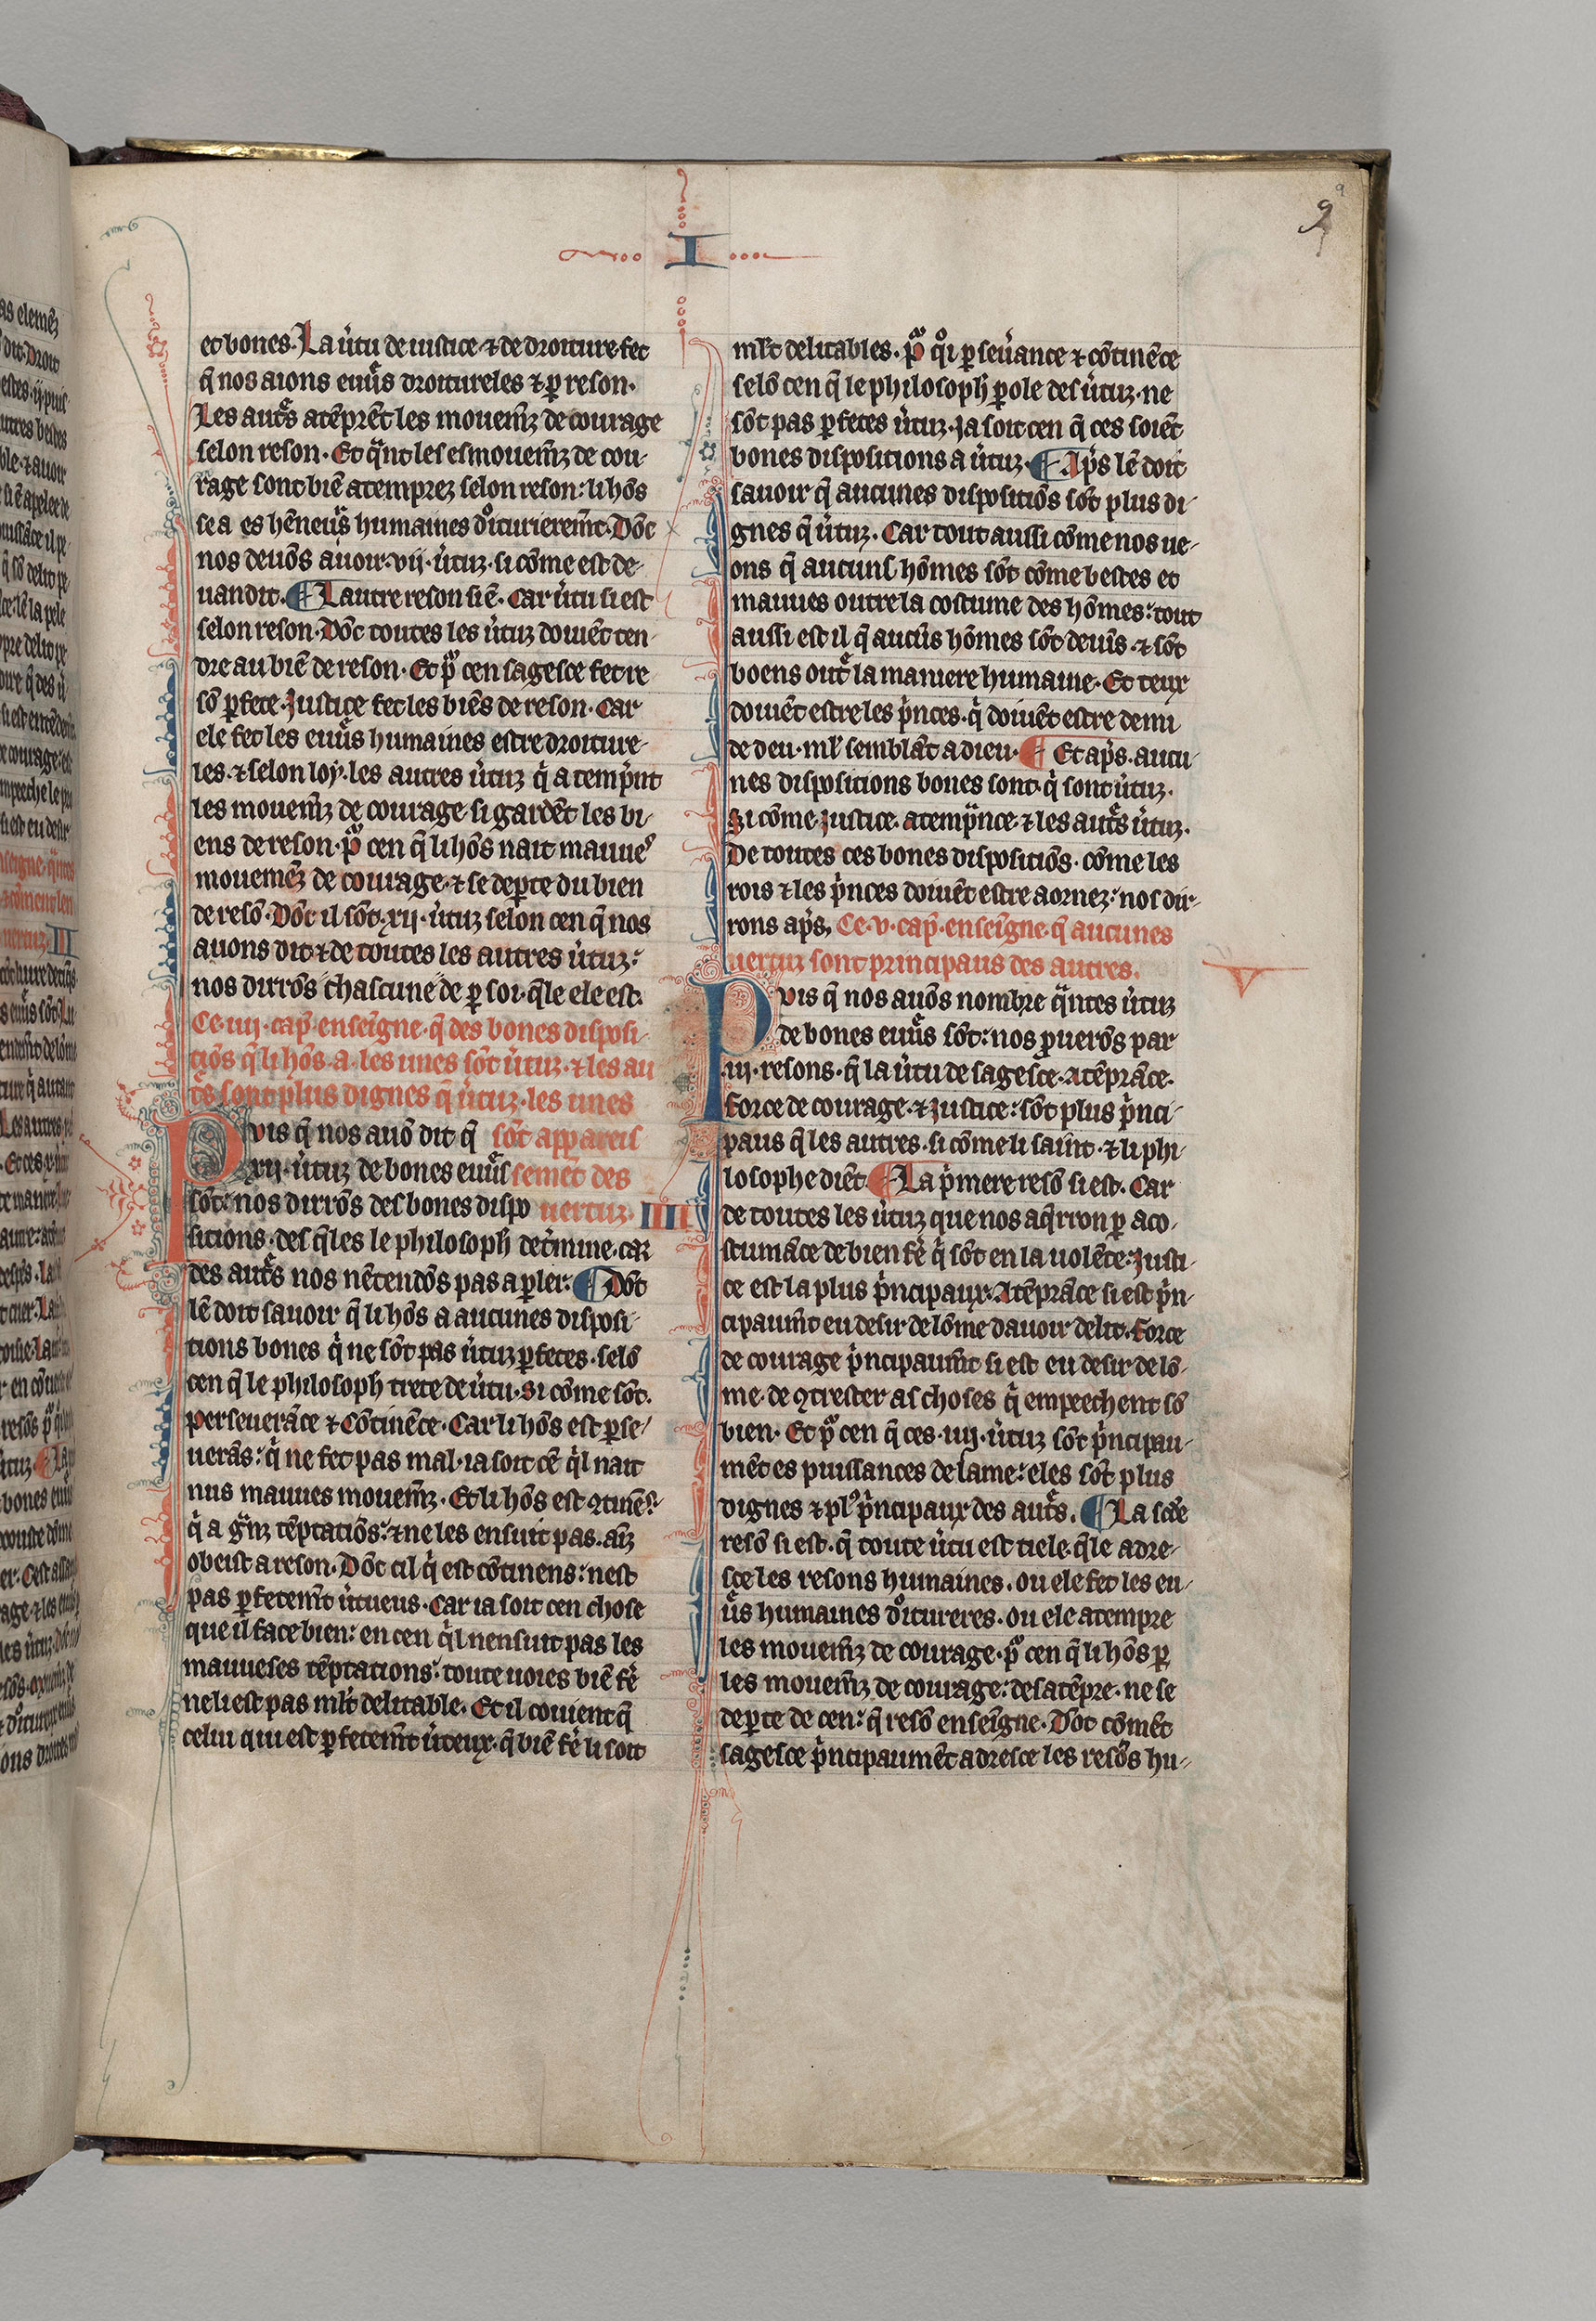 I
9
9
et bones. La ỽtu de iustice ⁊ de droiture fet
q̄ nos aions euur̄s droitureles ⁊ ꝑ reson.
Les autr̄s atēprēt les mouem̄z de courage
selon reson. Et qn̄t les esmouem̄z de cou-
rage sont bien atemprez selon reson: li hōs
se a es hēneus humaines doiturierem̄t. Dōc
nos deuōs auoir .vij. ỽtuz. si cōme est de-
uandit. ¶ Lautre reson si ē. Car ỽtu si est
selon reson. Dōc toutes les ỽtuz doiuēt ten-
dre au biē de reson. Et po᷑ cen sagesce fet re
sō ꝑfete. Justice fet les biēs de reson. Car
ele fet les euur̄s humaines estre droiture-
les. ⁊ selon loy. les autres ỽtuz qͥ atemp̄nt
les mouem̄z de courage si gardēt les bi-
ens de reson. po᷑ cen q̄ li hōs nait mauueˢ
mouemēz de courage. ⁊ se deꝑte du bien
de resō. Dōc il sōt .xij. ỽtuz selon cen q̄ nos
auons dit ⁊ de toutes les autres ỽtuz:
nos dirrōs chascune de ꝑ soi. q̄le ele est.
Ce .iiij. cap̄. enseigne. q̄ des bones disposi-
tiōs q̄ li hōs. a. les unes sōt ỽtuz. ⁊ les au
tr̄s sont plus dignes q̄ ỽtuz. les unes
Puis q̄ nos auō dit q̄ sōt appareil
.xij. ỽtuz de bones euur̄s semēt des
sōt: nos dirrōs des bones dispo uertuz. IIII
sitions. des q̄les le philosoph̄ det̄mine. car
des autr̄s nos nētendōs pas a ꝑler. ¶ Dōt
lē doit sauoir q̄ li hōs a aucunes disposi-
tions bones qͥ ne sōt pas ỽtuz ꝑfetes. selō
cen q̄ le philosoph trete de ỽtu. Si cōme sōt.
perseuerāce ⁊ cōtinēce. Car li hōs est ꝑse-
uerās: qͥ ne fet pas mal. ia soit cē qͥl nait
nus mauues mouem̄z. Et li hōs est ꝯtinēs:
qͥ a gn̄z tēptatiōs: ⁊ ne les ensuit pas. aīz
obeist a reson. Dōc cil qͥ est cōtinens: nest
pas ꝑfetem̄t ỽtueus. Car ia soit cen chose
que il face bien: en cen qͥl nensuit pas les
mauueses tēptations: toute uoies biē fē
ne li est pas ml̄t delitable. Et il couient q̄
celui qui est ꝑfetem̄t ỽteux. q̄ biē fē li soit
ml̄t delitables. po᷑ qͦi ꝑseuāance ⁊ cōtinēce
selō cen q̄ le philosoph̄ ꝑole des ỽtuz. ne
sōt pas ꝑfetes ỽtuz. Ja soit cen q̄ ces soiēt
bones dispositions a ỽtuz. ¶ Ap̄s lē doit
sauoir q̄ aucunes dispositiōs sōt plus di-
gnes q̄ ỽtuz. Car tout aussi cōme nos ue-
ons q̄ aucuns hōmes sōt cōme bestes et
mauues outre la costume des hōmes: tout
aussi est il q̄ aucūs hōmes sōt deuīs. ⁊ sōt
boens outr̄ la maniere humaine. Et ceux
doiuēt estre les p̄nces. qͥ doiuēt estre demi
de deu. ml̄t semblāt a dieu. ¶ Et ap̄s. aucu-
nes dispositions bones sont. qͥ sont ỽtuz.
Si cōme. Justice. atemp̄nce. ⁊ les autr̄s ỽtuz.
De toutes ces bones dispositiōs. cōme les
rois ⁊ les p̄nces doiuēt estre aornez: nos dir-
rons ap̄s. Ce .v. cap̄. enseigne. q̄ aucunes
uertuz sont principaus des autres.
Puis q̄ nos auōs nombre qn̄tes ỽtuz
de bones euur̄s sōt: nos ꝓuerōs par
.iij. resons. q̄ la ỽtu de sagesce. Atēprāce.
force de courage. ⁊ Justice: sōt plus p̄nci-
paus q̄ les autres. si cōme li saint. ⁊ li phi-
losophe diēt. ¶ La p̄mere resō si est. Car
de toutes les ỽtuz que nos aq̄rron ꝑ aco-
stumāce de bien fē qͥ sōt en la uolēte: Justi-
ce est la plus p̄ncipaux. Atēprāce si est p̄n-
cipaum̄t eu desir de lōme dauoir delit. Force
de courage p̄ncipaum̄t si est eu desir de lō-
me. de ꝯtrester as choses qͥ empeechent sō
bien. Et po᷑ cen q̄ ces .iiij. ỽtuz sōt p̄ncipau-
mēt es puissances de lame: eles sōt plus
dignes ⁊ plˢ p̄ncipaux des autr̄s. ¶ La scd̄e
resō si est. q̄ toute ỽtu est tiele. q̄le adre-
sce les resons humaines. ou ele fet les eu-
ur̄s humaines doitureres. ou ele atempre
les mouem̄z de courage. po᷑ cen q̄ li hōs ꝑ
les mouem̄z de courage: desatēpre. ne se
deꝑte de cen: q̄ resō enseigne. Dōc cōmēt
sagesce p̄ncipaumēt adresce les resōs hu-